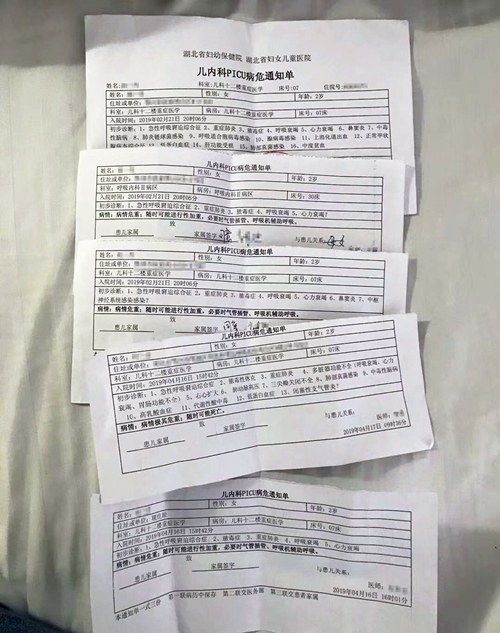 湖北省妇幼保健院 湖北省妇女儿童医院
儿内科PICU病危通知单
姓名: 性别:女 年龄:2岁
科室:儿科十二楼重症医学 床号:07 住院号:
住址或单位: 病房:儿科十二楼重症医学
入院时间:2019年02月21日 20时06分
初步诊断:1、急性呼吸窘迫综合征 2、重症肺炎 3、脓毒症 4、呼吸衰竭 5、心力衰竭 6、鼻窦炎 7、中毒
性脑病 8、肺炎链球菌感染
12、低蛋白血症 14、肝功能受损 16、中度贫血
儿内科PICU病危通知单
姓名: 性别:女 年龄:2岁
住址或单位:
科室:呼吸内科Ⅱ病区 病房:呼吸内科Ⅱ病区 床号:30床
入院时间:2019年02月21日 20时06分
初步诊断:1、急性呼吸窘迫综合征 2、重症肺炎 3、脓毒症 4、呼吸衰竭 5、心力衰竭?
病情:病情危重,随时可能进行性加重,必要时气管插管、呼吸机辅助呼吸。
患儿家属 家属签字 与患儿关系:
儿内科PICU病危通知单
姓名: 性别:女 年龄:2岁
住址或单位:
科室:儿科十二楼重症医学 病房:儿科十二楼重症医学 床号:07床
入院时间:2019年02月21日 20时06分
初步诊断:1、急性呼吸窘迫综合征 2、重症肺炎 3、脓毒症 4、呼吸衰竭 5、心力衰竭 6、鼻窦炎 7、中枢
神经系统感染感染?
病情:病情危重,随时可能进行性加重,必要时气管插管、呼吸机辅助呼吸。
致
患儿家属 家属签字
儿内科PICU病危通知单
姓名: 性别:女 年龄:2岁
住址或单位:
科室:儿科十二楼重症医学 病房:儿科十二楼重症医学 床号:07床
入院时间:2019年04月16日 15时42分
初步诊断:1、急性呼吸窘迫综合症 2、脓毒性休克 3、重症肺炎 4、多脏器功能不全(呼吸衰竭、心力
衰竭、胃肠功能不全) 5、右心扩大 6、肺动脉高压 7、三尖瓣关闭不全 8、肺部真菌感染 9、中毒性脑病
10、高乳酸血症 11、代谢性酸中毒 12、低蛋白血症 13、闭塞性支气管炎?
病情:病情极其危重,随时可能死亡。
致
患儿家属 家属签字 与患儿关系:
医师:
2019年04月17日 09时36分
儿内科PICU病危通知单
姓名: 性别:女 年龄:2岁
住址或单位:现住址
科室:儿科十二楼重症医学 病房:儿科十二楼重症医学 床号:07床
入院时间:2019年04月16日 15时42分
初步诊断:1、急性呼吸窘迫综合征 2、重症肺炎 3、脓毒症 4、呼吸衰竭 5、心力衰竭
病情:病情危重,随时可能进行性加重,必要时气管插管、呼吸机辅助呼吸。
致
患儿家属 家属签字 与患儿关系:
医师:
2019年04月16日 16时01分
本通知单一式三份 第一联病历中保存 第二联交医务部 第三联交患者家属